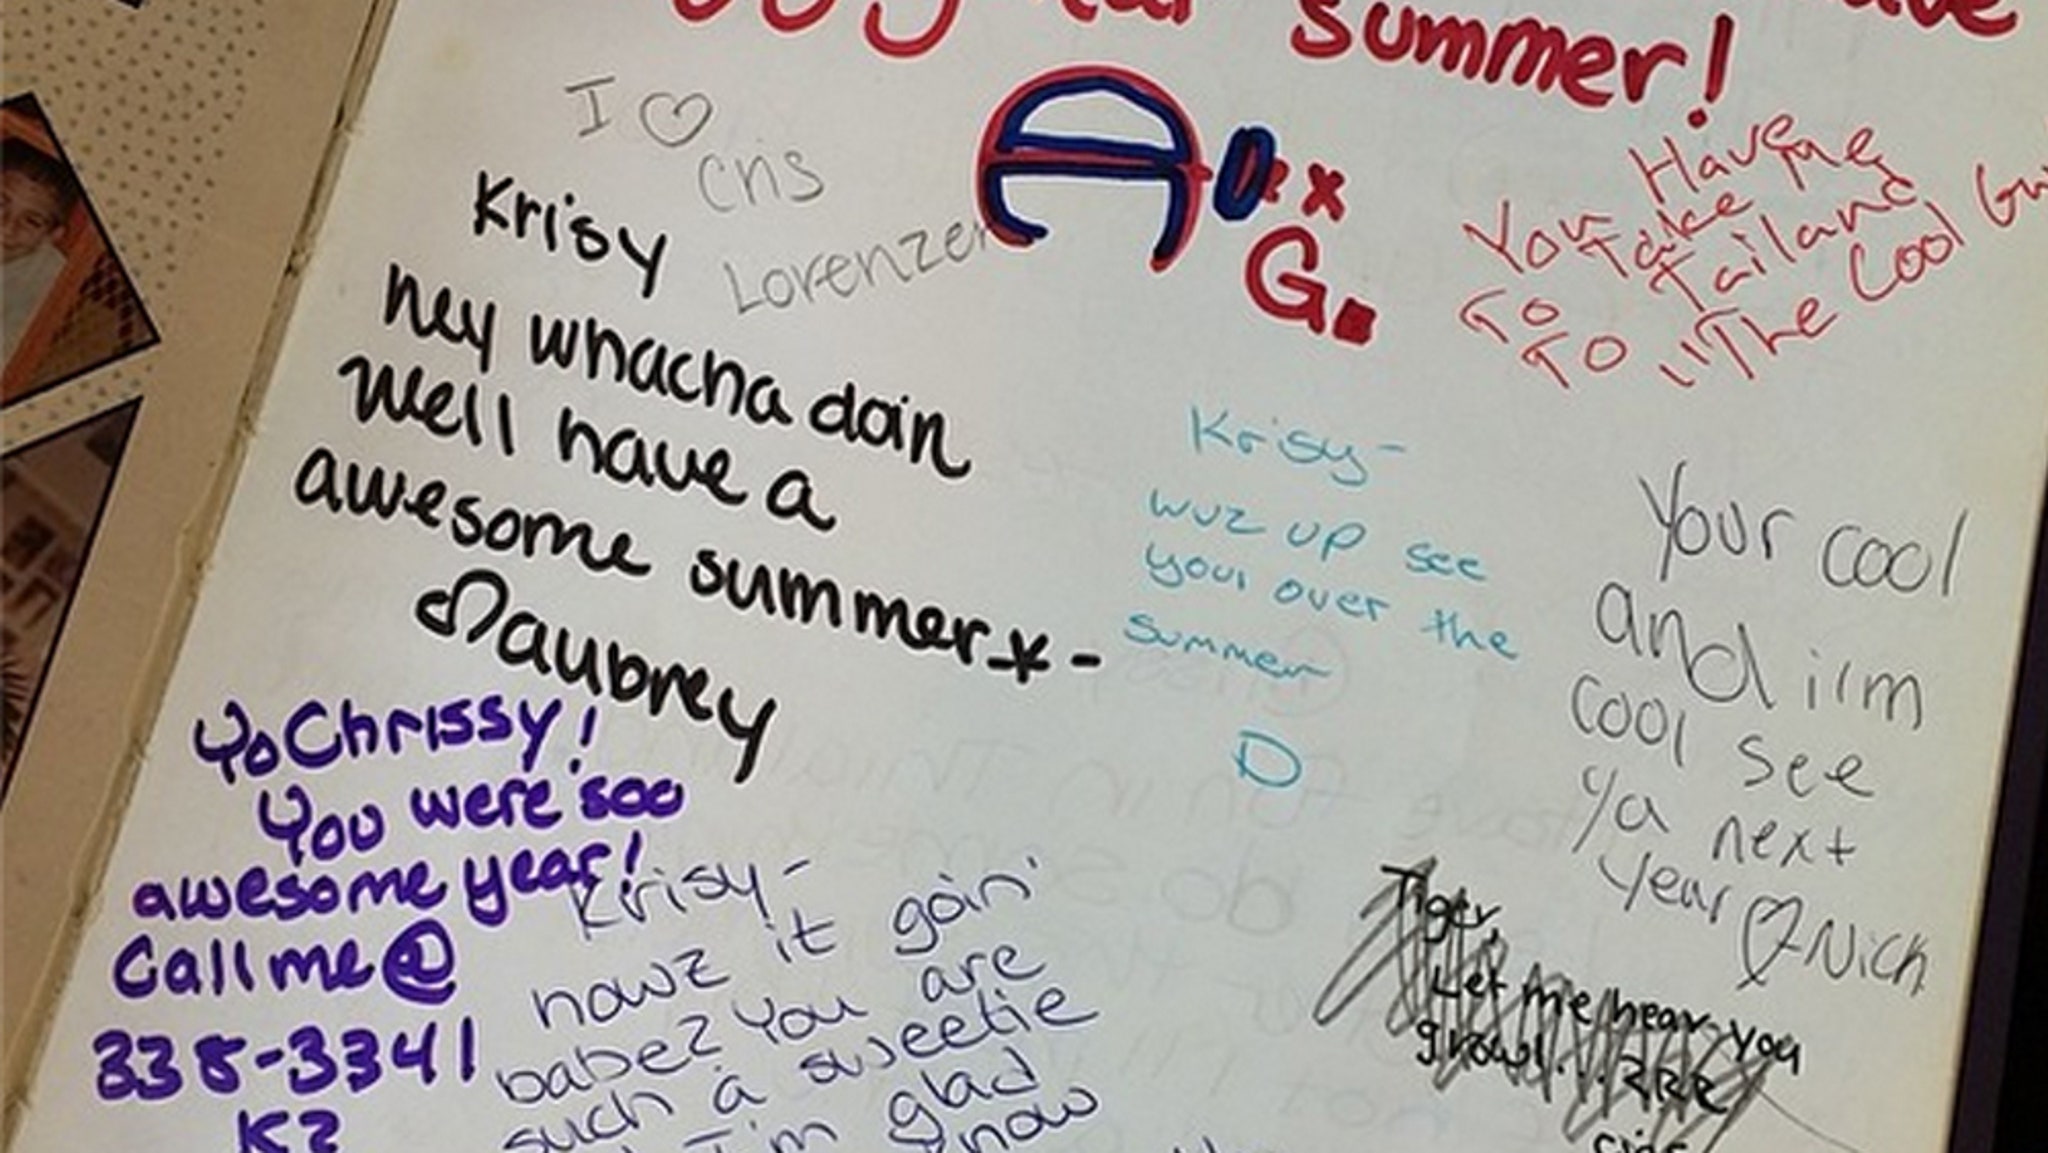 summer!
I ♡
cris
Lorenzen
Alex
G.
Have
You Take me
Go Tailand
To "The Cool
Krisy
hey whacha doin
well have a
awesome summer*-
♡aubrey
Krisy-
wuz up see
you over the
summer
D
Your cool
and i'm
cool see
ya next
year ♡-Nick
Yo Chrissy!
You were soo
awesome year!
Call me @
338-3341
K?
Krisy-
howz it goin'
babe? You are
such a sweetie
I'm glad
know
Tiger,
Let me hear you
growl...RRR